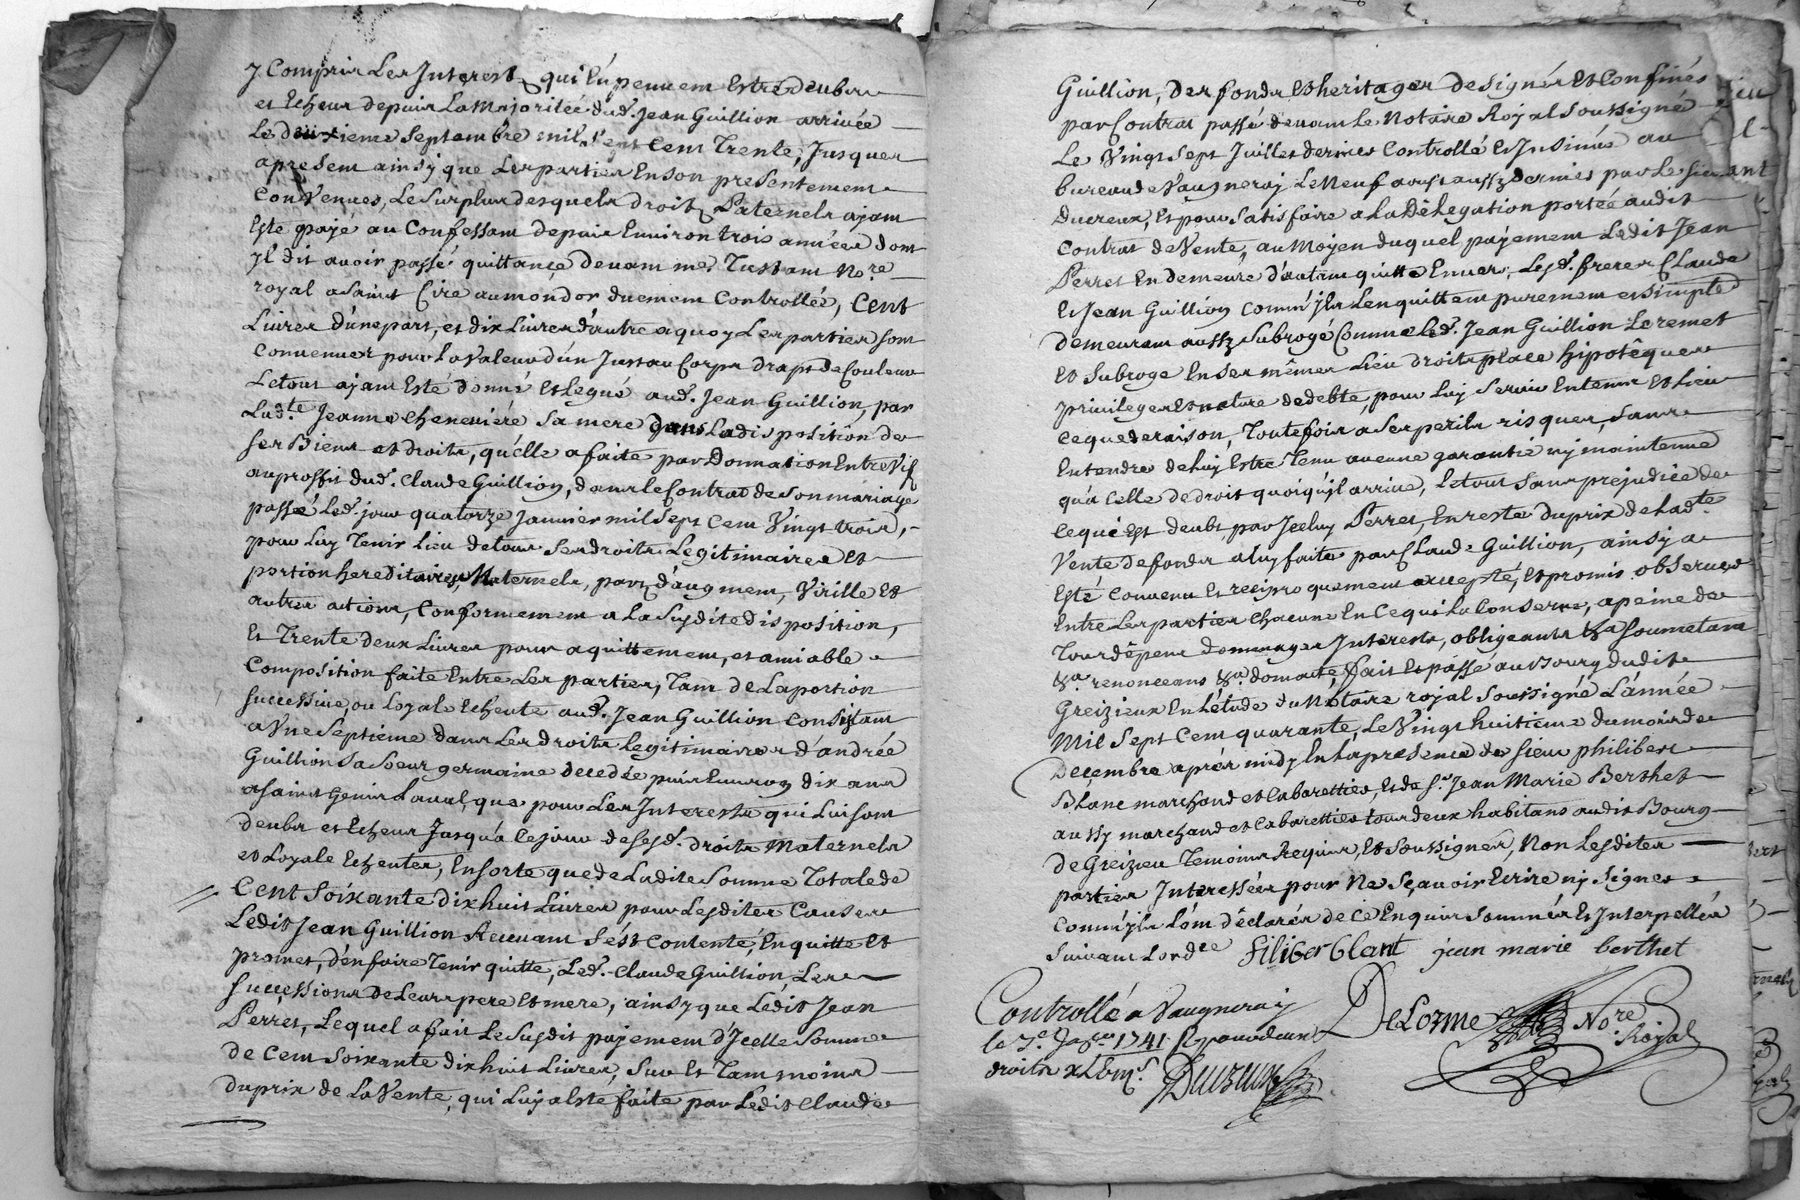 y Compris Les Interest qui En peuvent Estre deubs
et Echeus depuis La Majoritée dud. Jean Guillion arrivée
Le deuxieme Septembre mil Sept Cent Trente, Jusques
apresent ainsy que Les parties En son presentement
Convenues, Le Surplus desquels droits Paternels ayant
Esté payé au Confessant depuis Environ trois années dont
Il dit avoir passé quittance devant me. Tustant No.re
royal a Saint Cire au mondor duement Controllée, Cent
Livres d'une part, et dix Livres d'autre a quoy Les parties sont
Convenues pour La Valeur d'un Justau Corps drapt de Couleur
Le tout ayant Esté donné et Legué aud. Jean Guillion, par
Lad.te Jeanne Chenevière Sa mere dans La disposition de
Ses Biens et droits, qu'elle a faite par Donnation Entre Vifs
au proffit dud. Claude Guillion, dans le Contrat de Son mariage
passé Led. jour quatorze Janvier mil Sept Cent Vingt trois,
pour Luy Tenir Lieu de tous Ses droits Legitimaires et
portion hereditaires, Maternels, part d'augment, Virille Et
autres actions, Conformement a La Susdite disposition,
Et Trente deux Livres pour aquittement, et amiable
Composition faite Entre Les parties, Tant de La portion
Successive, ou Loyale Echeute aud. Jean Guillion Consistant
a Une Septieme dans Les droits Legitimaires d'andrée
Guillion Sa Soeur germaine decedée puis Environ dix ans
a Saint Genis Laval, que pour Les Interests qui Lui sont
deubs et Echeus Jusqu'a Ce jour de Sesd. droits Maternels
et Loyale Echeutes, En sorte que de Ladite Somme Totale de
Cent Soixante dix huit Livres pour Lesdites Causes
Ledit Jean Guillion Recevant S'est Contenté, En quitte Et
promet, d'en faire Tenir quitte, Led. Claude Guillion, Les
Successions de Leurs pere Et mere, ainsy que Ledit Jean
Perret, Lequel a fait Le Susdit payement d'Icelle Somme
de Cent Soixante dix huit Livres, Sur Et Tant moins
du prix de La Vente, qui Luy a Esté faite par Ledit Claude
Guillion, des fonds Et heritages designés Et Confinés
par Contrat passé devant Le Notaire Royal Soussigné
Le Vingt Sept Juillet dernier Controllé Et Insinué au
bureau de Vaugneray Le Neuf aoust aussy dernier par Le Sieur
Ducreux, Et pour Satisfaire a La Délegation portée audit
Contrat de Vente, au Moyen duquel payement Ledit Jean
Perret En demeure d'autant quitte Envers Lesd. freres Claude
Et Jean Guillion Comm'ils L'en quittent purement et Simple
demeurant aussy Subrogé Comme Led. Jean Guillion Le remet
Et Subroge En Ses mêmes Lieu droits place hipotêques
privileges Et nature de debte, pour Luy Servir Entems Et Lieu
Ce que de raison, Toutefois a Ses perils risques, Sans
Entendre de Luy Estre Tenu aucune garantie ny maintenue
qu'a Celle de droit quoiqu'il arrive, Le tout Sans prejudice de
Ce qui Est deubt, par Iceluy Perret, En reste du prix de Lad.te
Vente de fonds a Luy faite par Claude Guillion, ainsy a
Esté Convenu Et reciproquement accepté, Et promis observer
Entre Les parties Chacune En Ce qui La Conserne, a peine de
Tous dépens dommages Interests, obligeants &a Soumetant
&a. renonceans &a. dont acte, fait Et passé au Bourg dudit
Greizieux En L'étude du Notaire royal Soussigné L'année
Mil Sept Cent quarante, Le Vingt huitieme du mois de
Decembre après midy En La presence de Sieur philibert
Blanc marchand et Cabarettier, Et de S.r Jean Marie Berthet
aussy marchand et Cabarettier tous deux habitans audit Bourg
de Greizieu Temoins Requis, Et Soussignes, Non Lesdites
parties Interessées pour Ne Sçavoir Ecrire ny Signer
Comm'ils L'ont déclarés de Ce Enquis Sommés Et Interpellés
Suivant L'ord.ce filiber blant jean marie berthet
Controllé a Vaugneray
le 7.e Ja.er 1741. DeLorme No.re Royal
droits